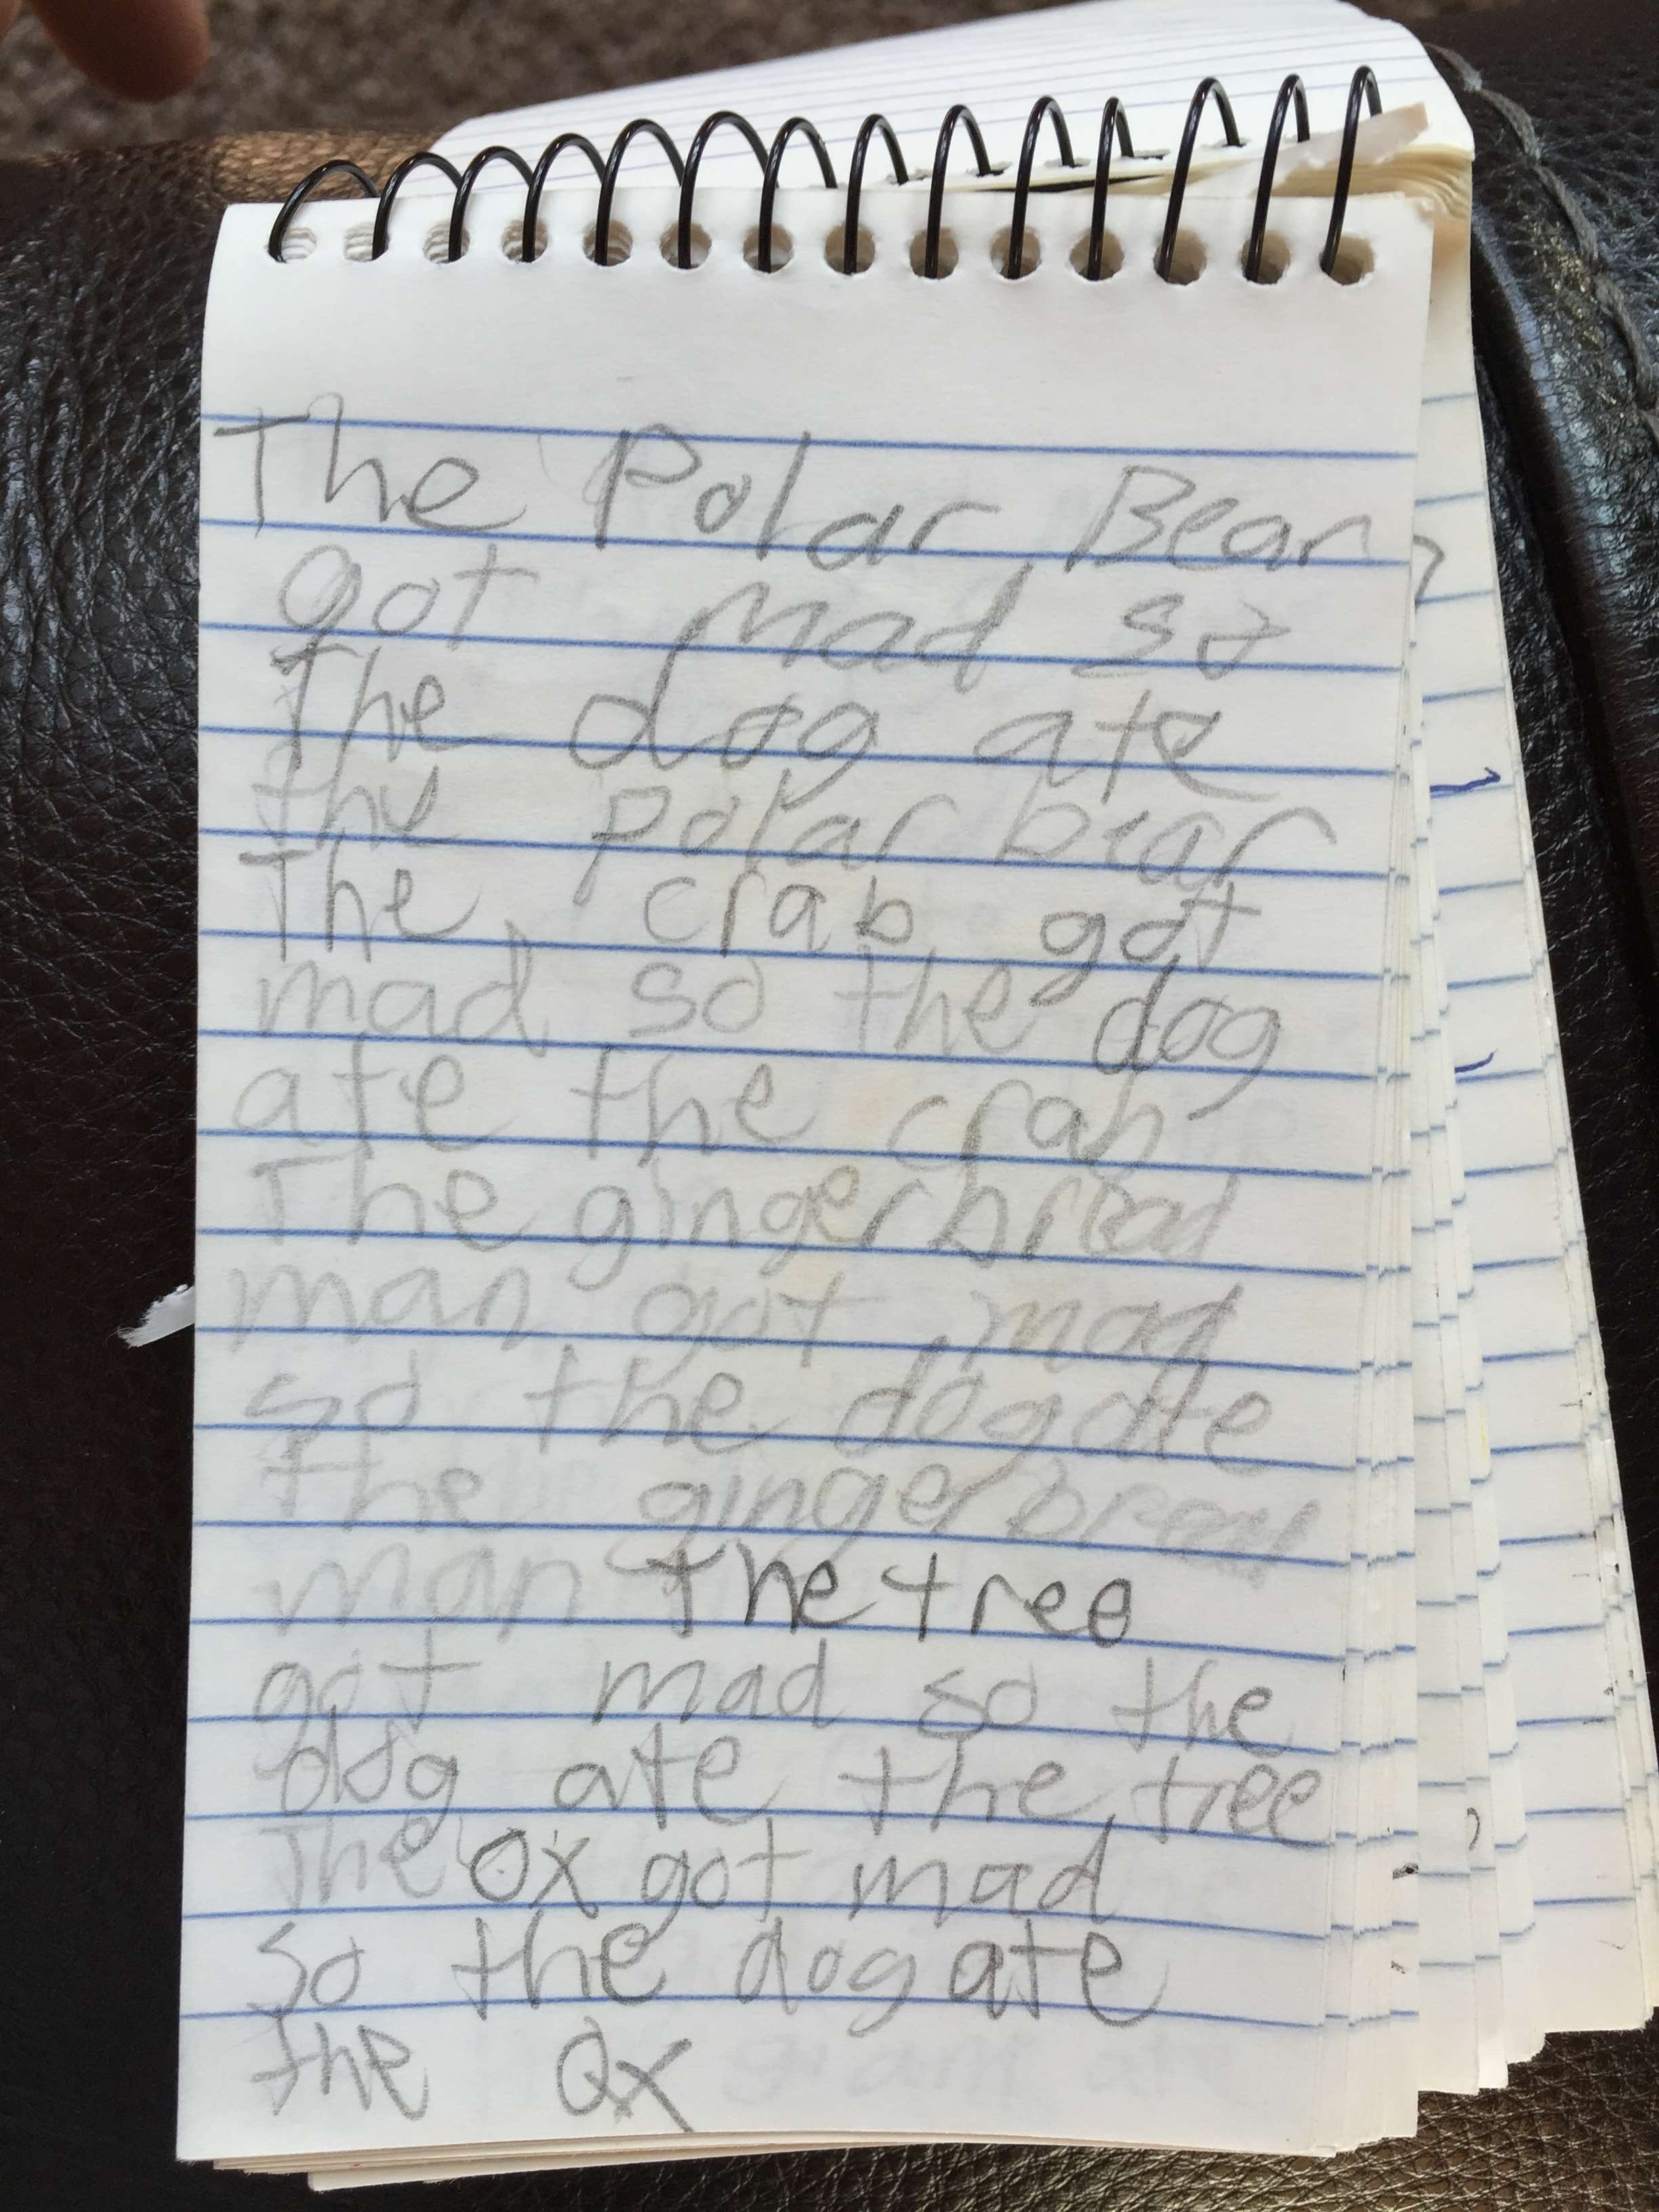 The Polar Bear
got mad so
The dog ate
the polar bear
The crab got
mad so the dog
ate the crab
The gingerbread
man got mad
so the dog ate
the gingerbread
man the tree
got mad so the
dog ate the tree
The Ox got mad
so the dog ate
the Ox